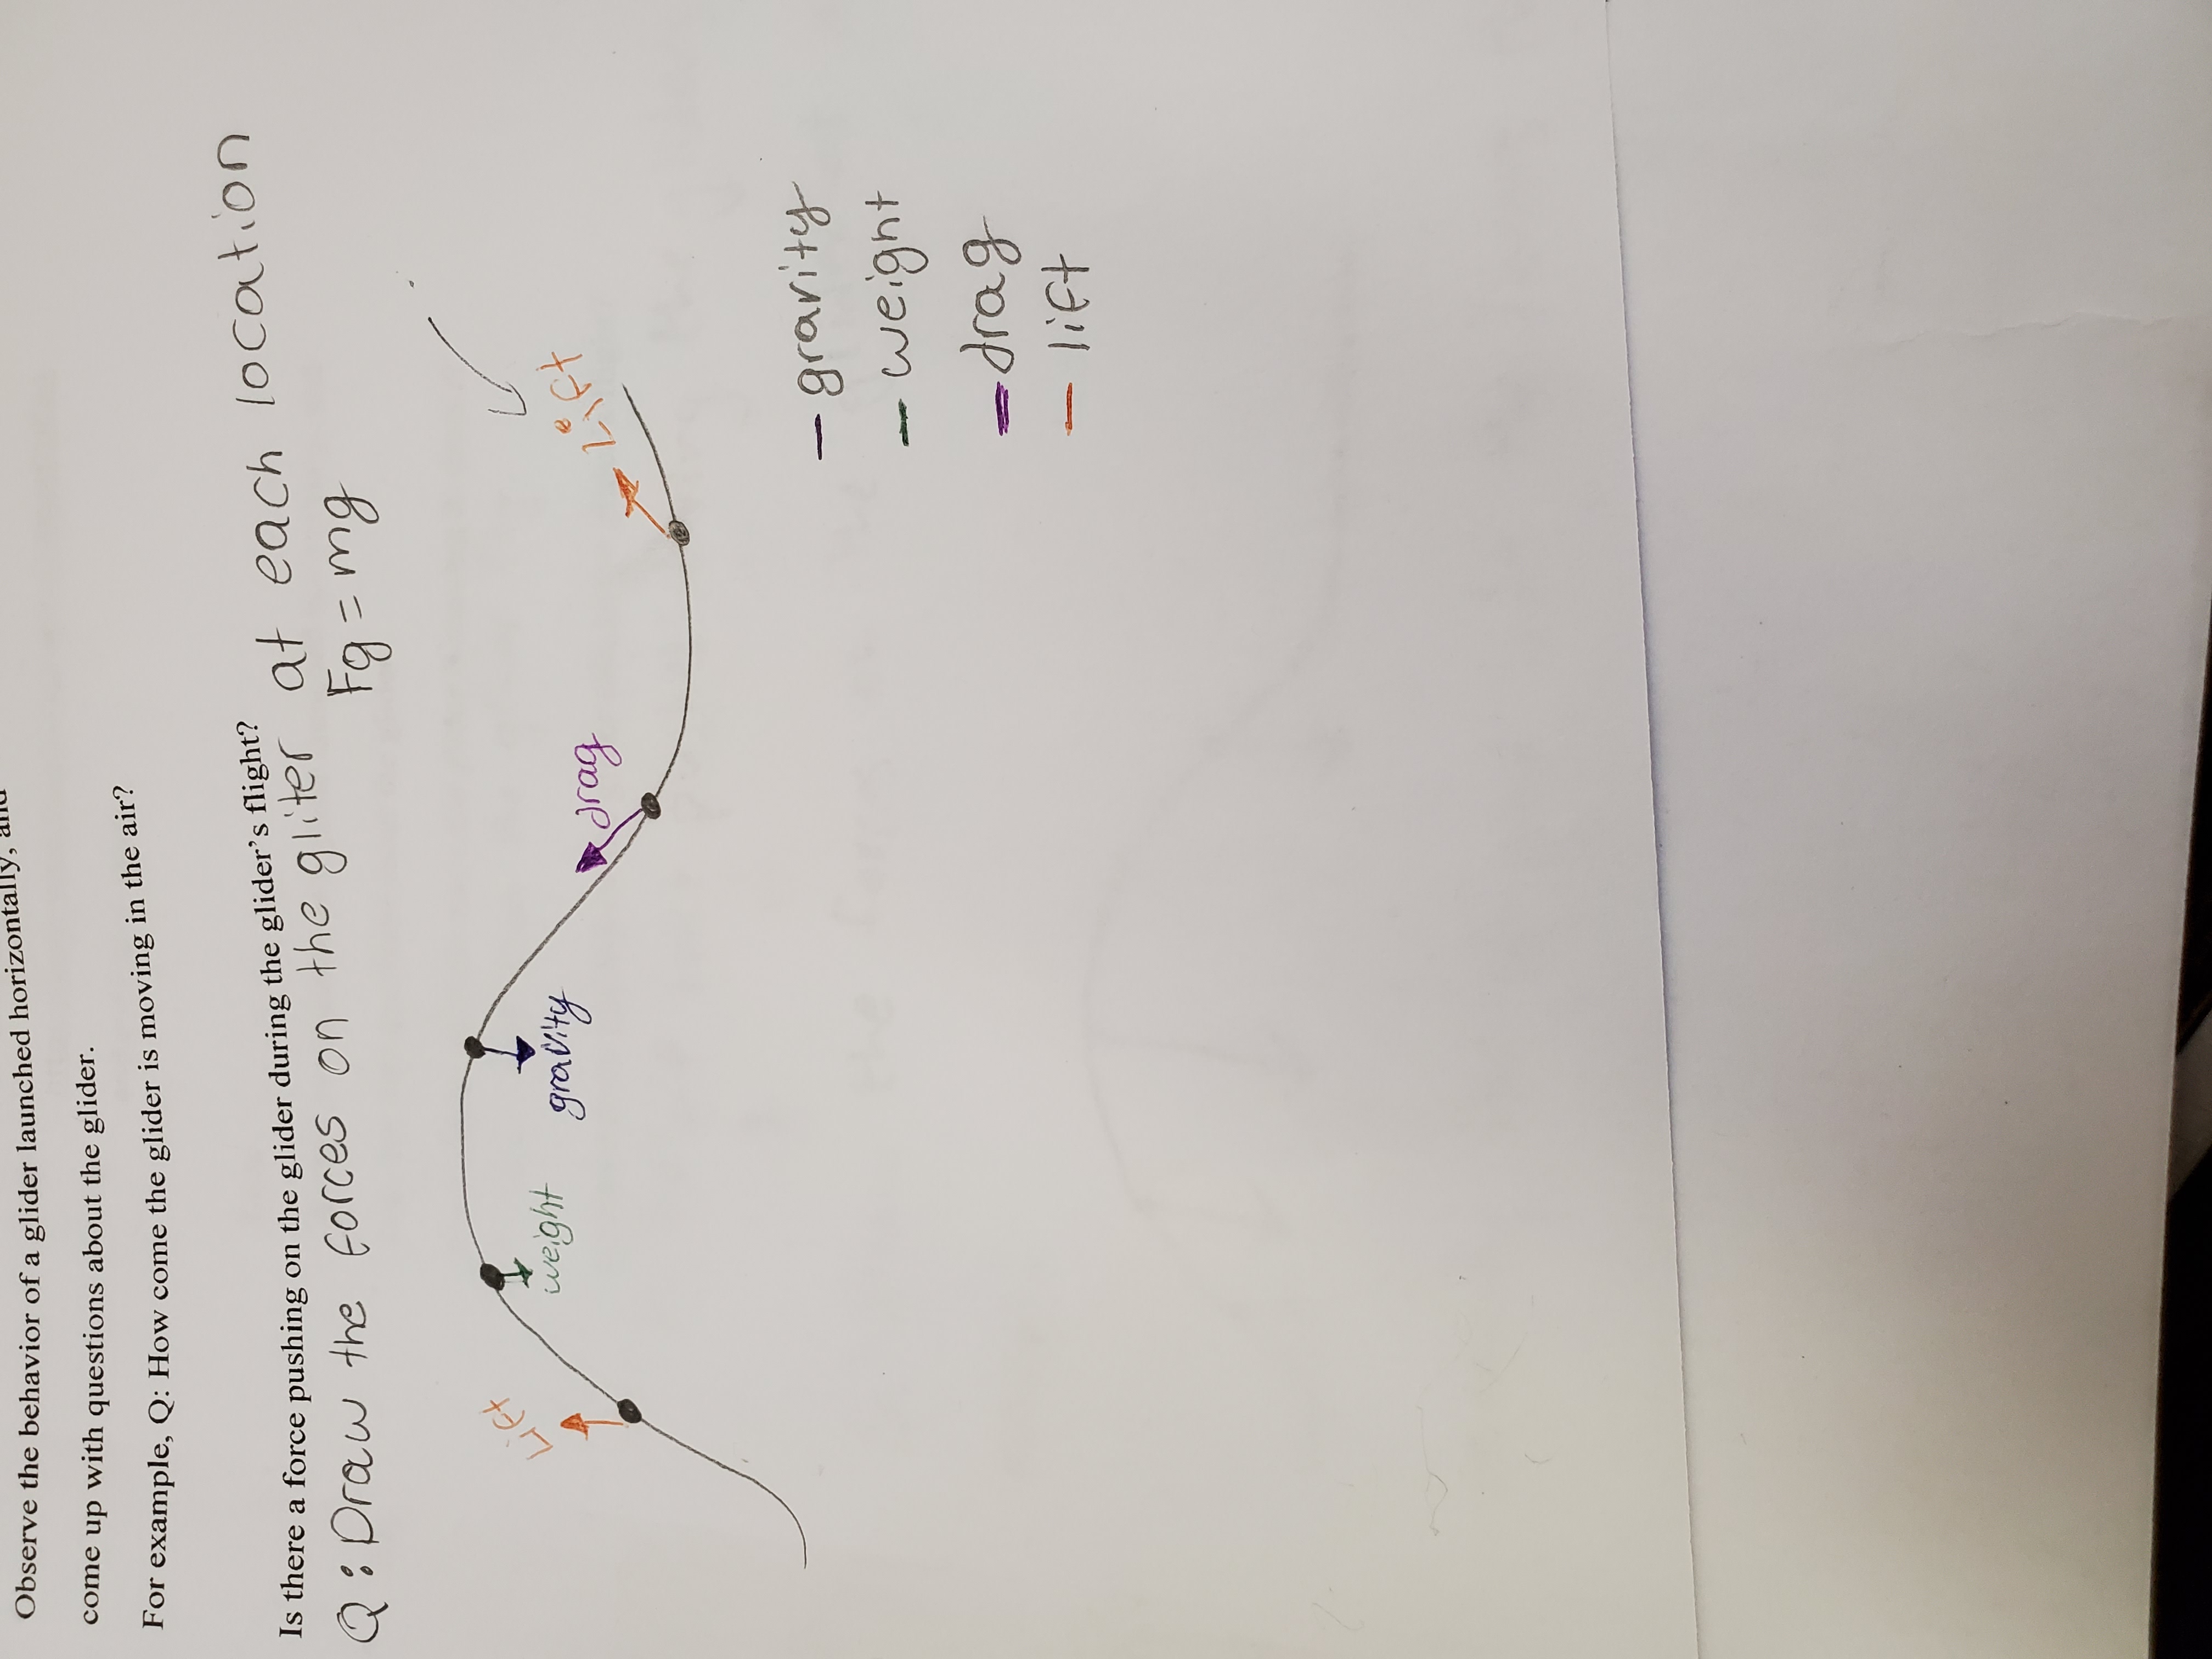 Observe the behavior of a glider launched horizontally, and
come up with questions about the glider.
For example, Q: How come the glider is moving in the air?
Is there a force pushing on the glider during the glider's flight?
Q: Draw the forces on the gliter at each location
Fg = mg
Lift
weight
gravity
drag
Lift
- gravity
- weight
- drag
- lift